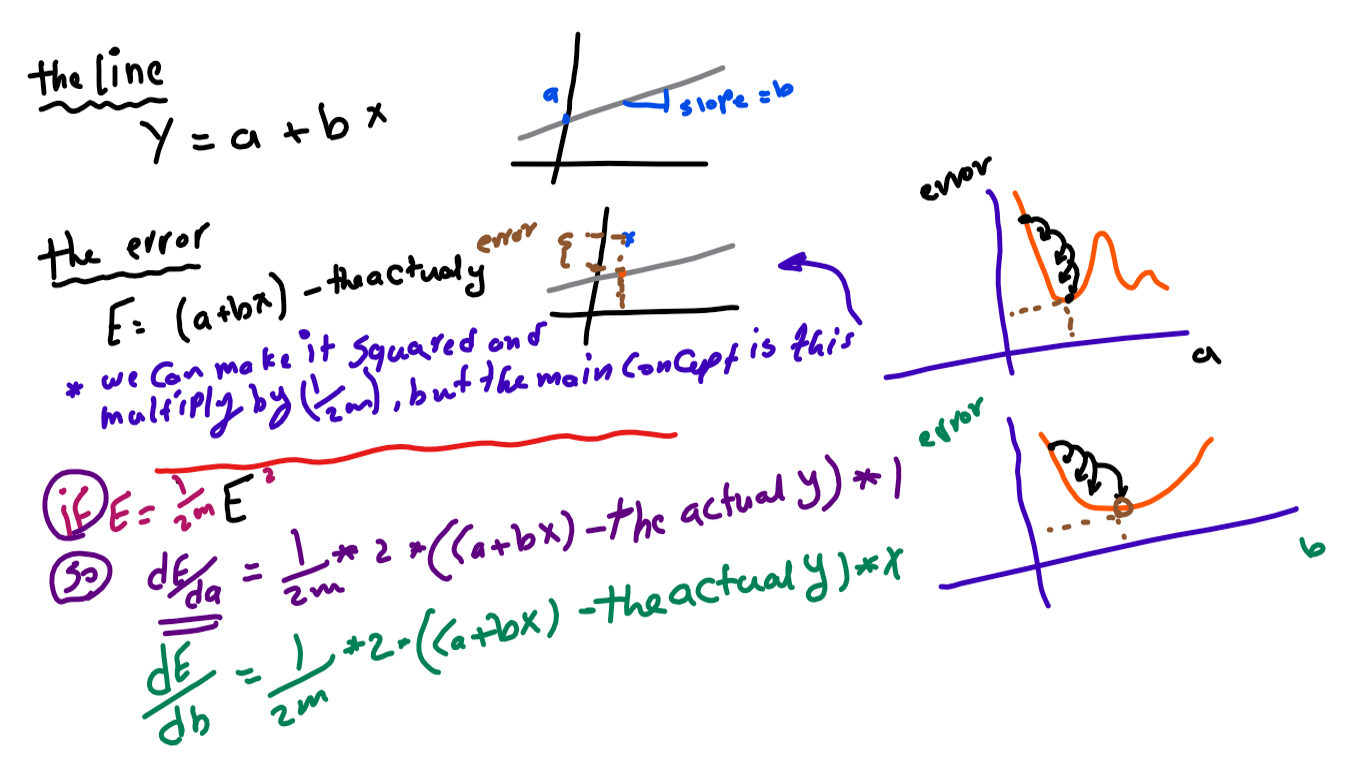 the line
Y = a + b x
a
slope = b
the error
E = (a+bx) - the actual y
error
* we can make it squared and
multiply by (1/2m), but the main concept is this
if E = 1/2m E²
so dE/da = 1/2m * 2 * ((a+bx) - the actual y) * 1
dE/db = 1/2m * 2 * ((a+bx) - the actual y) * x
error
a
error
b